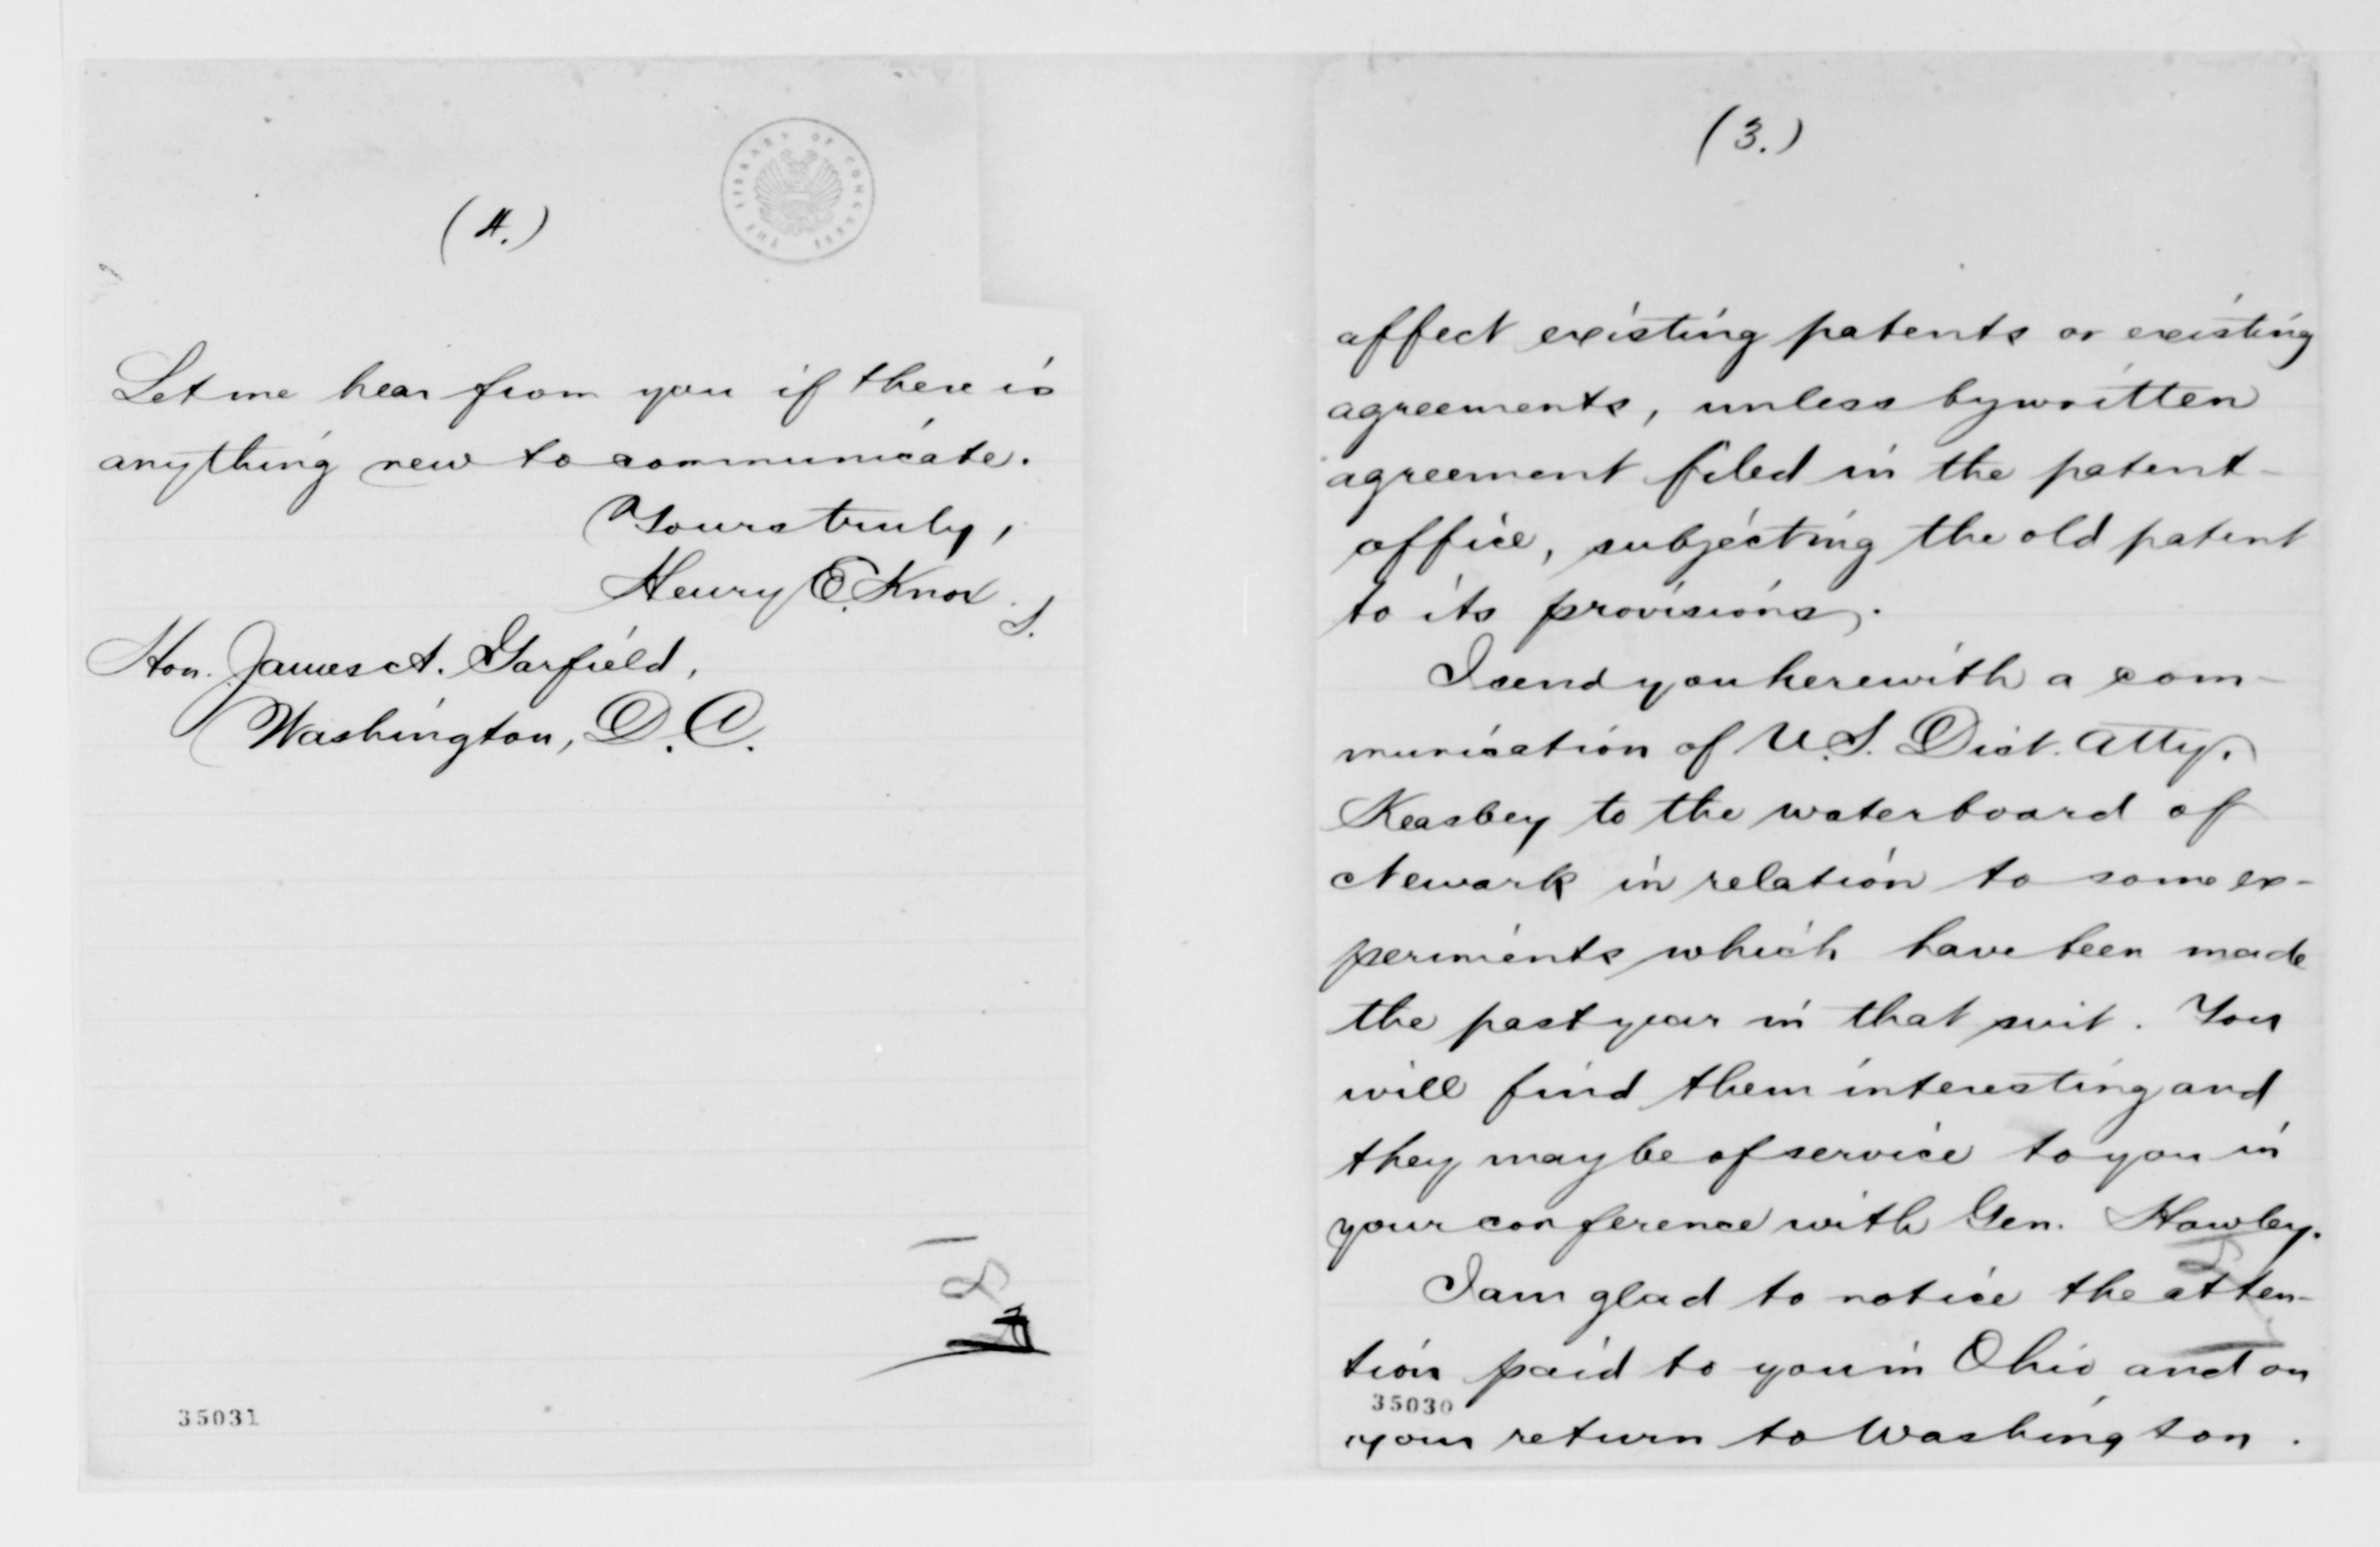 (3.)
affect existing patents or existing
agreements, unless by written
agreement filed in the patent-
office, subjecting the old patent
to its provisions.
I send you herewith a com-
munication of U.S. Dist. Atty.
Keasbey to the waterboard of
Newark in relation to some ex-
periments which have been made
the past year in that suit. You
will find them interesting and
they may be of service to you in
your conference with Gen. Hawley.
I am glad to notice the atten-
tion paid to you in Ohio and on
35030
your return to Washington.
(4.)
THE LIBRARY OF CONGRESS
Let me hear from you if there is
anything new to communicate.
Yours truly,
Henry E. Knox
S.
Hon. James A. Garfield,
Washington, D.C.
35031